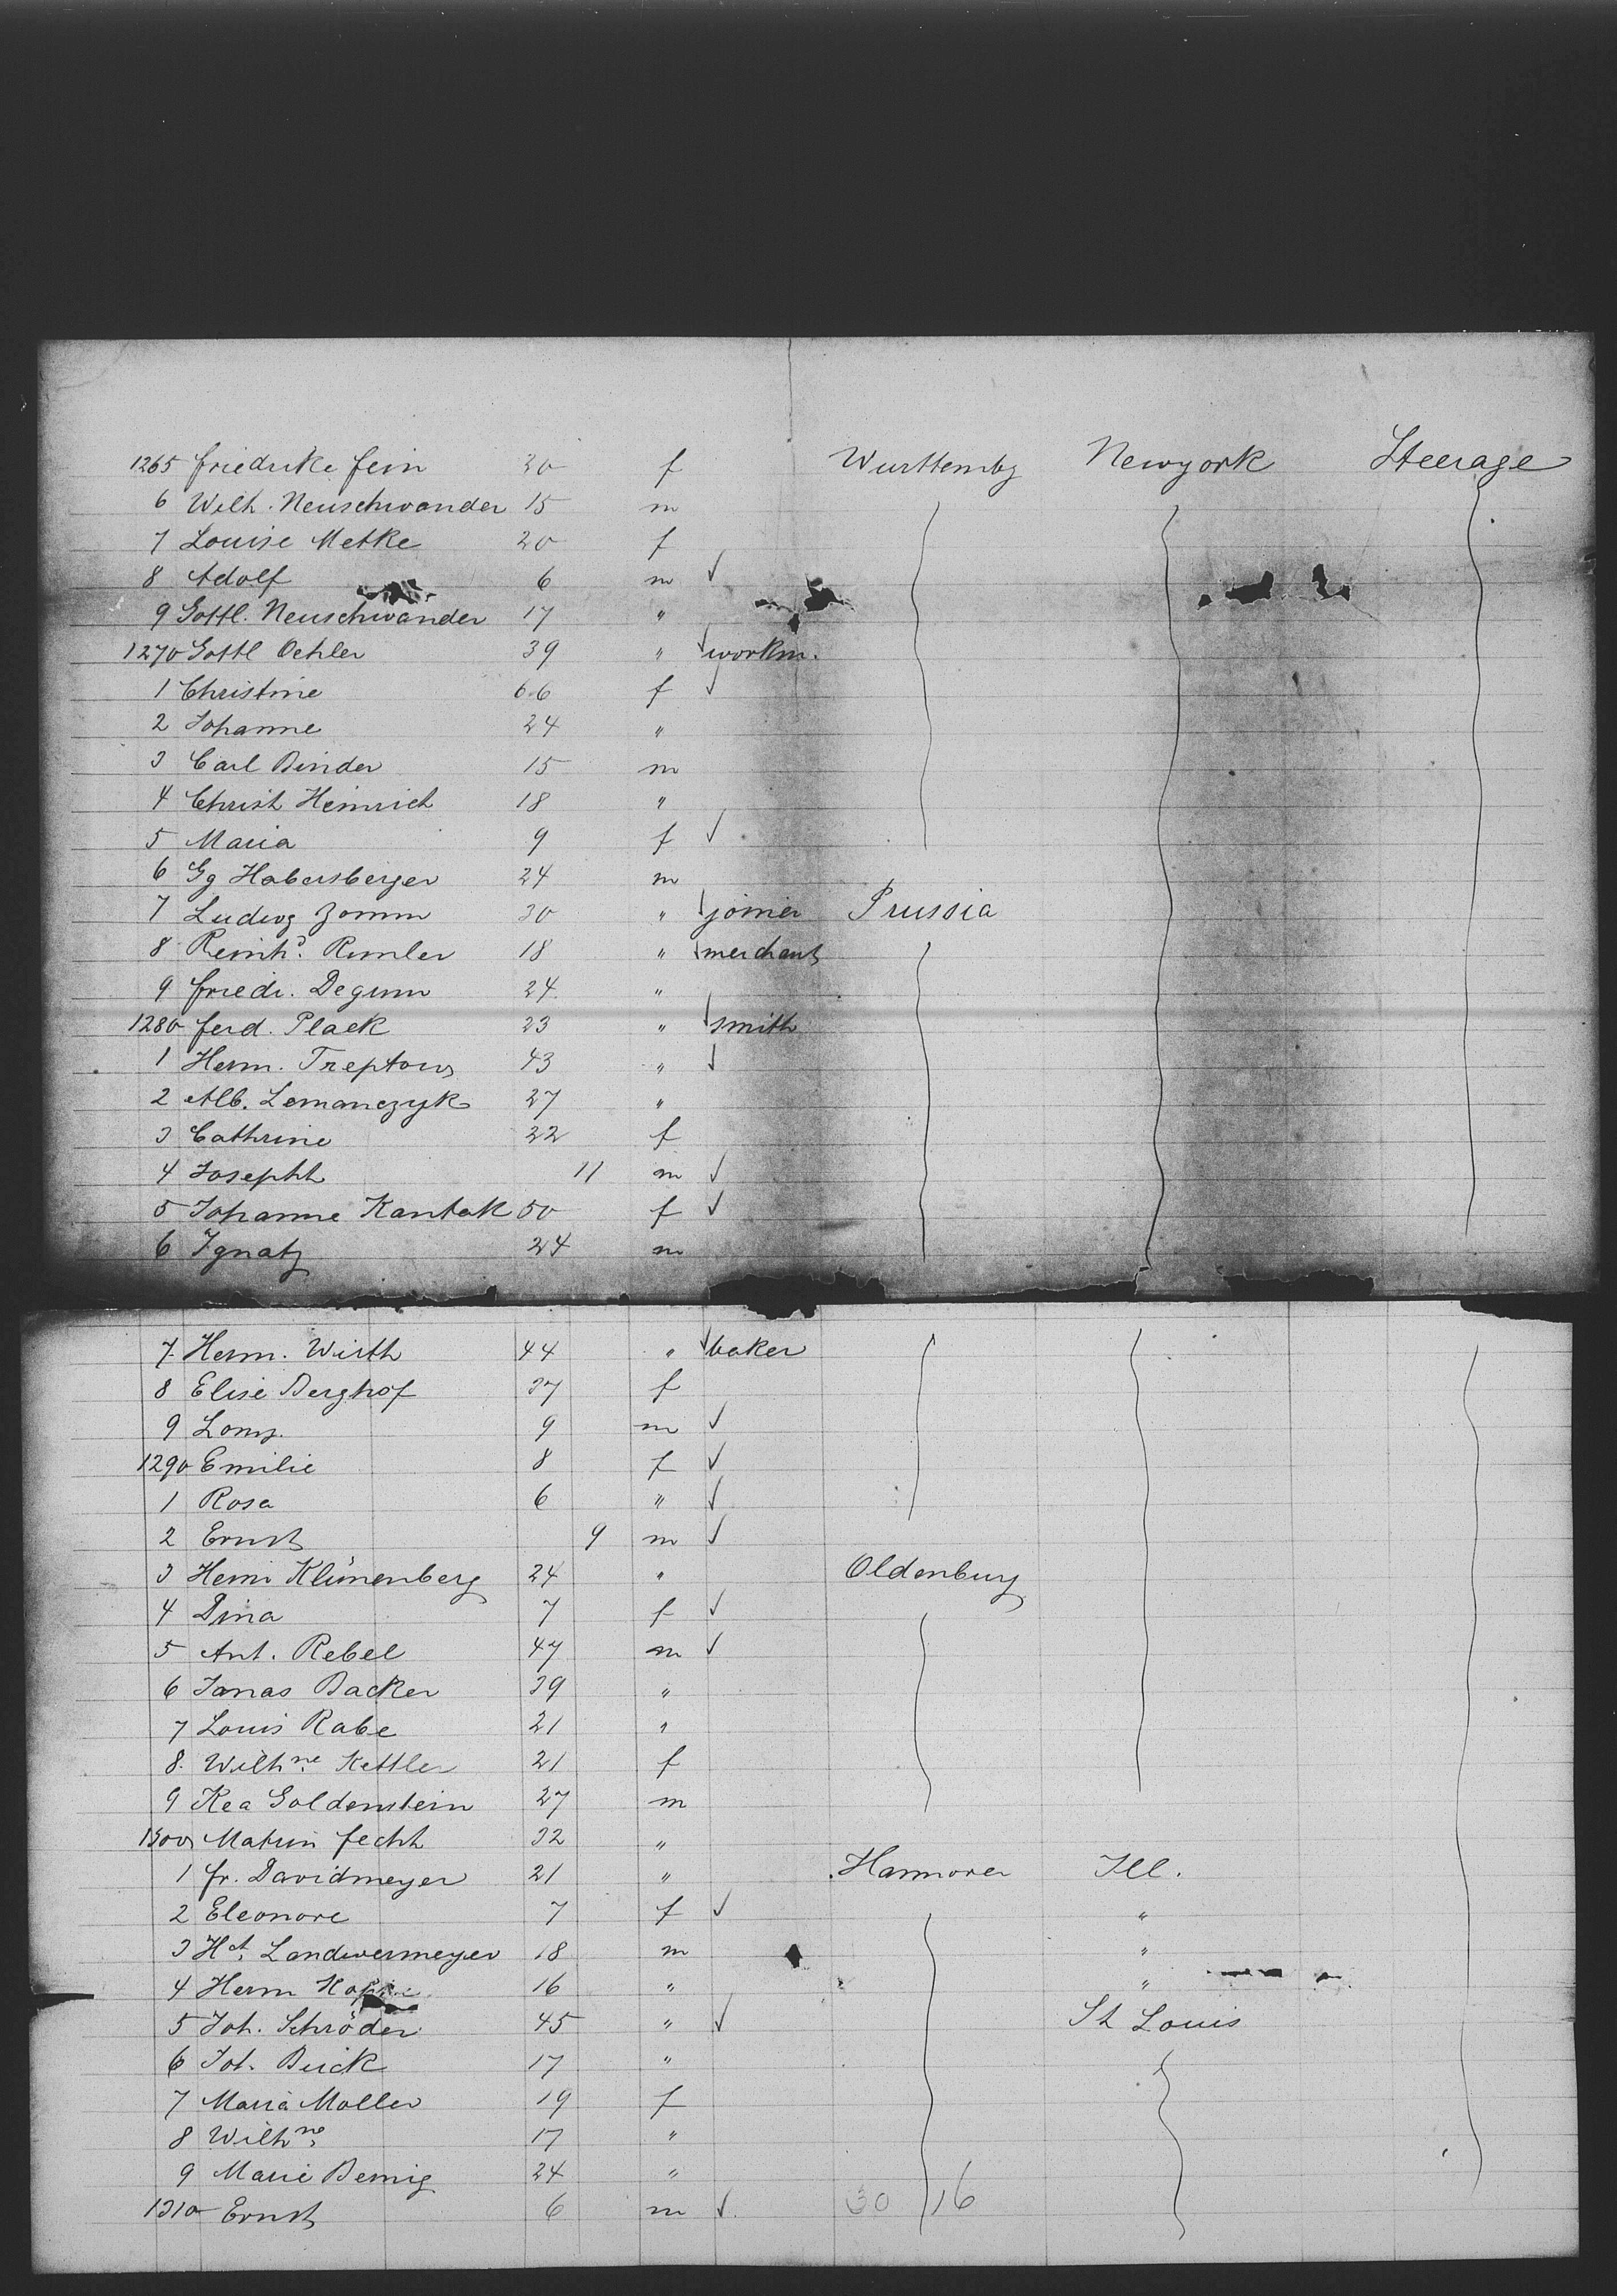 1265 Friedrike Fein 20 f Wurttembg Newyork Steerage
6 Wilh. Neuschwander 15 m
7 Louise Metke 20 f
8 Adolf 6 m ✓
9 Gottl. Neuschwander 17 "
1270 Gottl Oehler 39 " ✓ workm.
1 Christine 66 f ✓
2 Johanne 24 "
3 Carl Binder 15 m
4 Christ Heinrich 18 "
5 Maria 9 f ✓
6 Gg Habersberger 24 m
7 Ludwg Zomm 30 " ✓ joiner Prussia
8 Reinhd. Rimler 18 " ✓ merchant
9 Friedr. Degum 24 "
1280 Ferd. Plack 23 " ✓ smith
1 Herm. Treptow 43 " ✓
2 Alb. Lemanczyk 27 "
3 Cathrine 22 f
4 Joseph 11 m ✓
5 Johanne Kantak 50 f ✓
6 Ignatz 24 m
7. Herm. Wirth 44 " ✓ baker
8 Elise Berghof 37 f
9 9 m ✓
1290 Emilie 8 f ✓
1 Rosa 6 " ✓
2 Ernst 9 m ✓
3 Heinr Klünenberg 24 " Oldenburg
4 Dina 7 f ✓
5 Ant. Rebel 47 m ✓
6 Janas Backer 39 "
7 Louis Rabe 21 "
8. Wilhne Kettler 21 f
9 Kea Goldenstein 27 m
1300 Matrin Fecht 32 "
1 Fr. Davidmeyer 21 " Hannover Ill.
2 Eleonore 7 f ✓ "
3 Ht. Landwermeyer 18 m "
4 Herm 16 " "
5 Joh. Schröder 45 " ✓ St Louis
6 Joh. Buck 17 "
7 Maria Moller 19 f
8 Wilhne 17 "
9 Marie Bemig 24 "
1310 Ernst 6 m ✓ 30 16